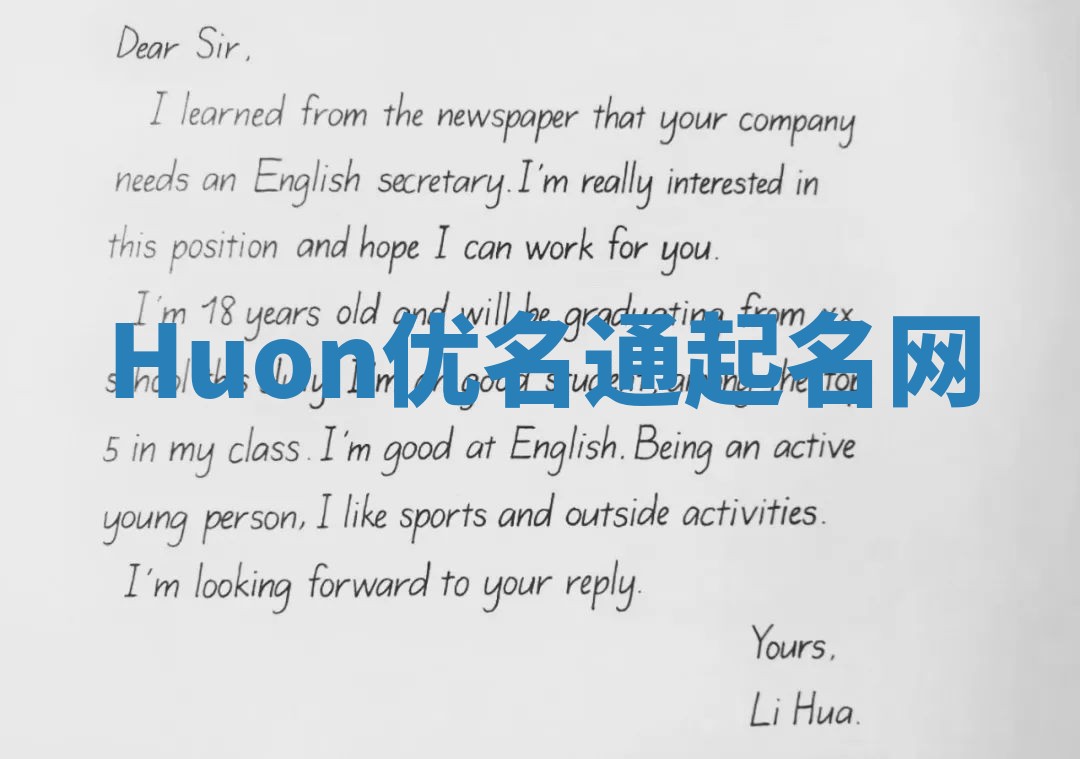 Dear Sir,
I learned from the newspaper that your company
needs an English secretary. I'm really interested in
this position and hope I can work for you.
I'm 18 years old and will be graduating from xx
Huon优名通起名网
school this July. I'm good student, among the top
5 in my class. I'm good at English. Being an active
young person, I like sports and outside activities.
I'm looking forward to your reply.
Yours,
Li Hua.